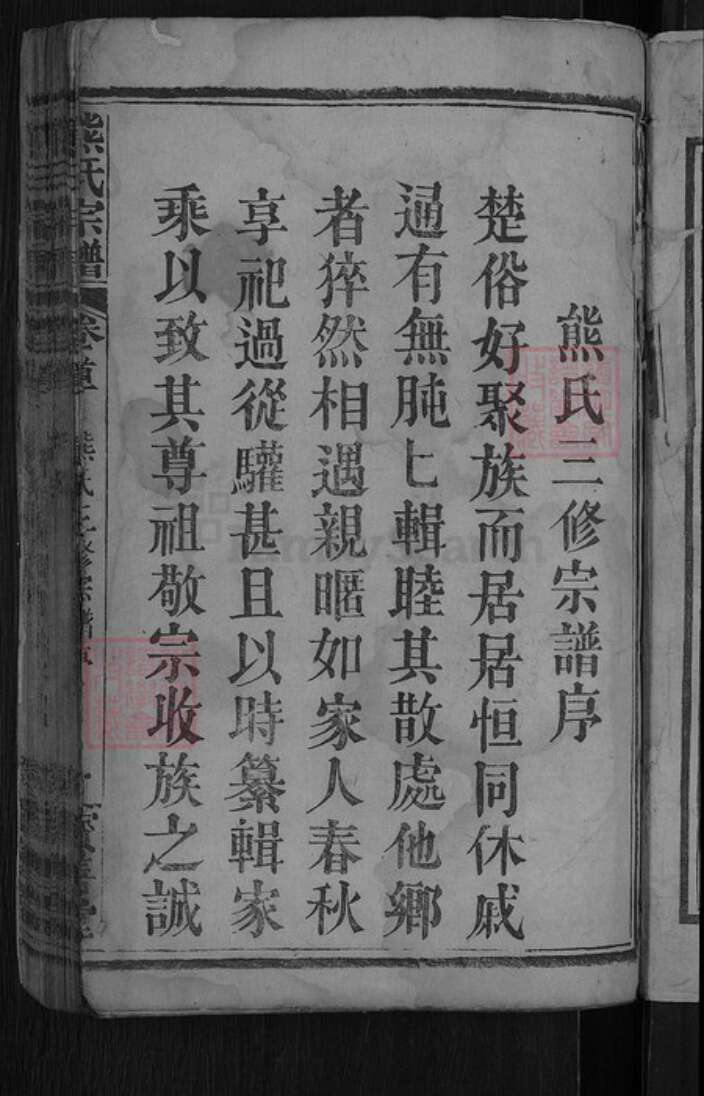 熊氏三修宗譜序
楚俗好聚族而居居恒同休戚
通有無肫匕輯睦其散處他鄉
者猝然相遇親暱如家人春秋
享祀過從驩甚且以時纂輯家
乘以致其尊祖敬宗收族之誠
熊氏宗譜
卷首
熊氏三修宗譜序